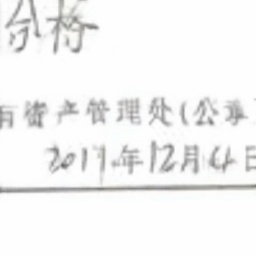 合格
有资产管理处(公章)
2017年12月4日